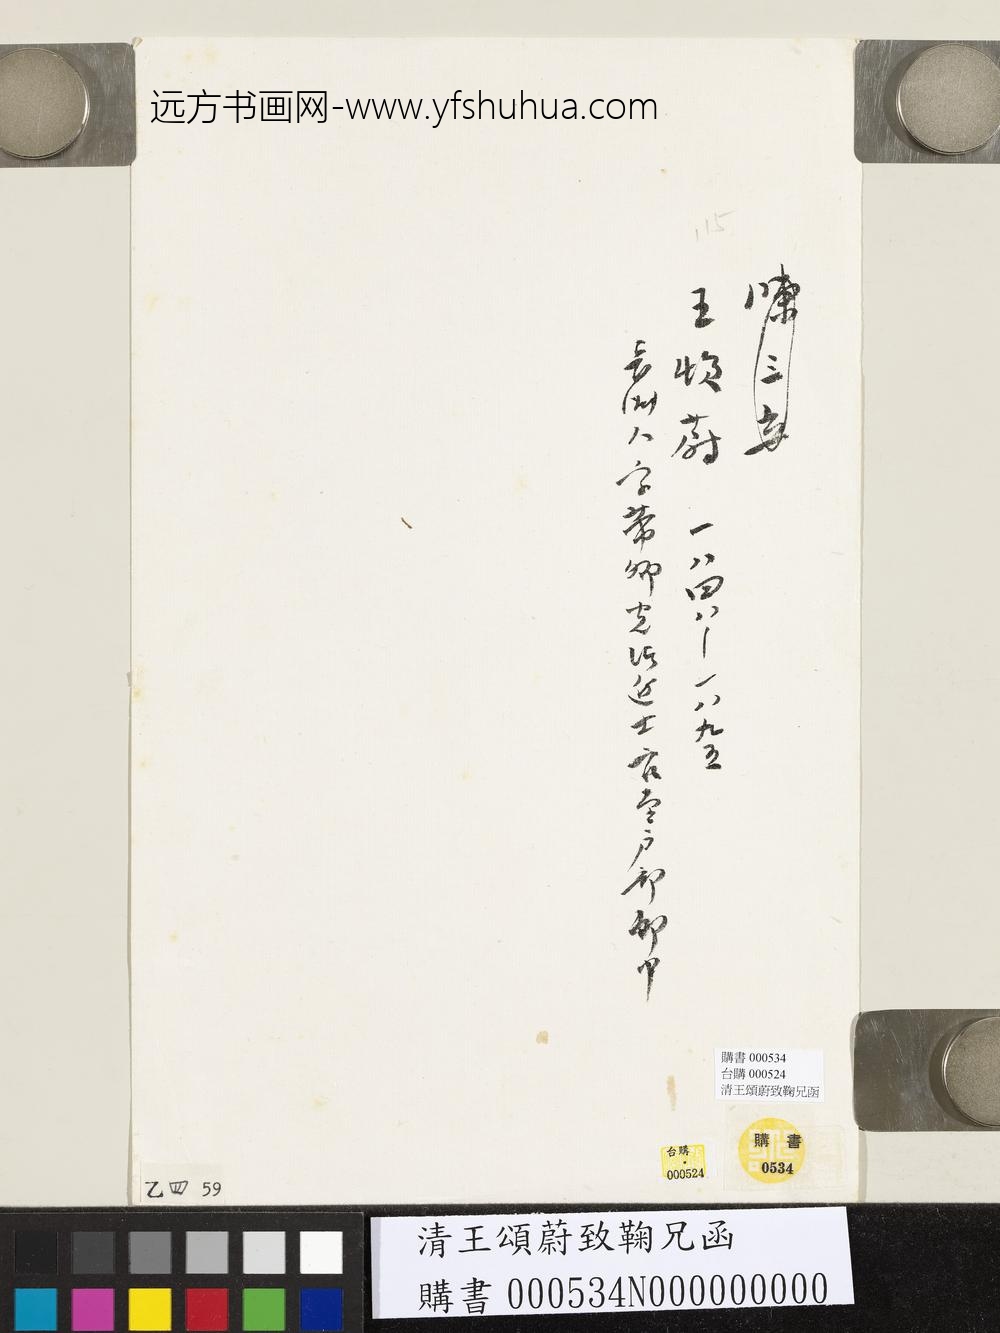 远方书画网-www.yfshuhua.com
115
王頌蔚 一八四八－一八九五
長洲人字蒂卿光緒進士官至户部郎中
購書 000534
台購 000524
清王頌蔚致鞠兄函
購書
0534
台購
000524
乙四 59
清王頌蔚致鞠兄函
購書 000534N000000000